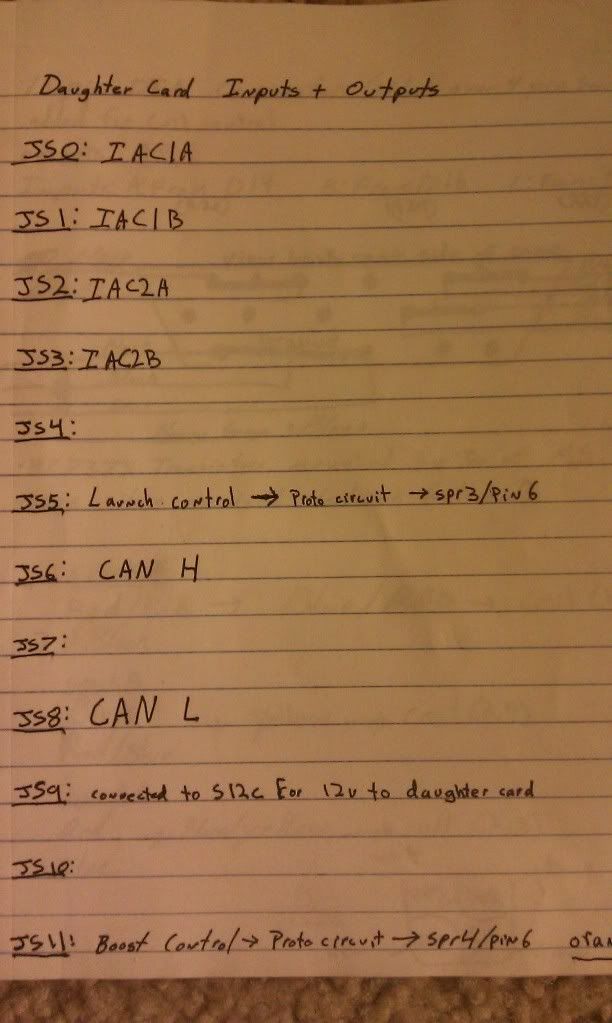 Daughter Card Inputs + Outputs
JS0: IAC1A
JS1: IAC1B
JS2: IAC2A
JS3: IAC2B
JS4:
JS5: Launch control → Proto circuit → spr3/pin 6
JS6: CAN H
JS7:
JS8: CAN L
JS9: connected to S12c For 12v to daughter card
JS10:
JS11: Boost Control → Proto circuit → spr4/pin6